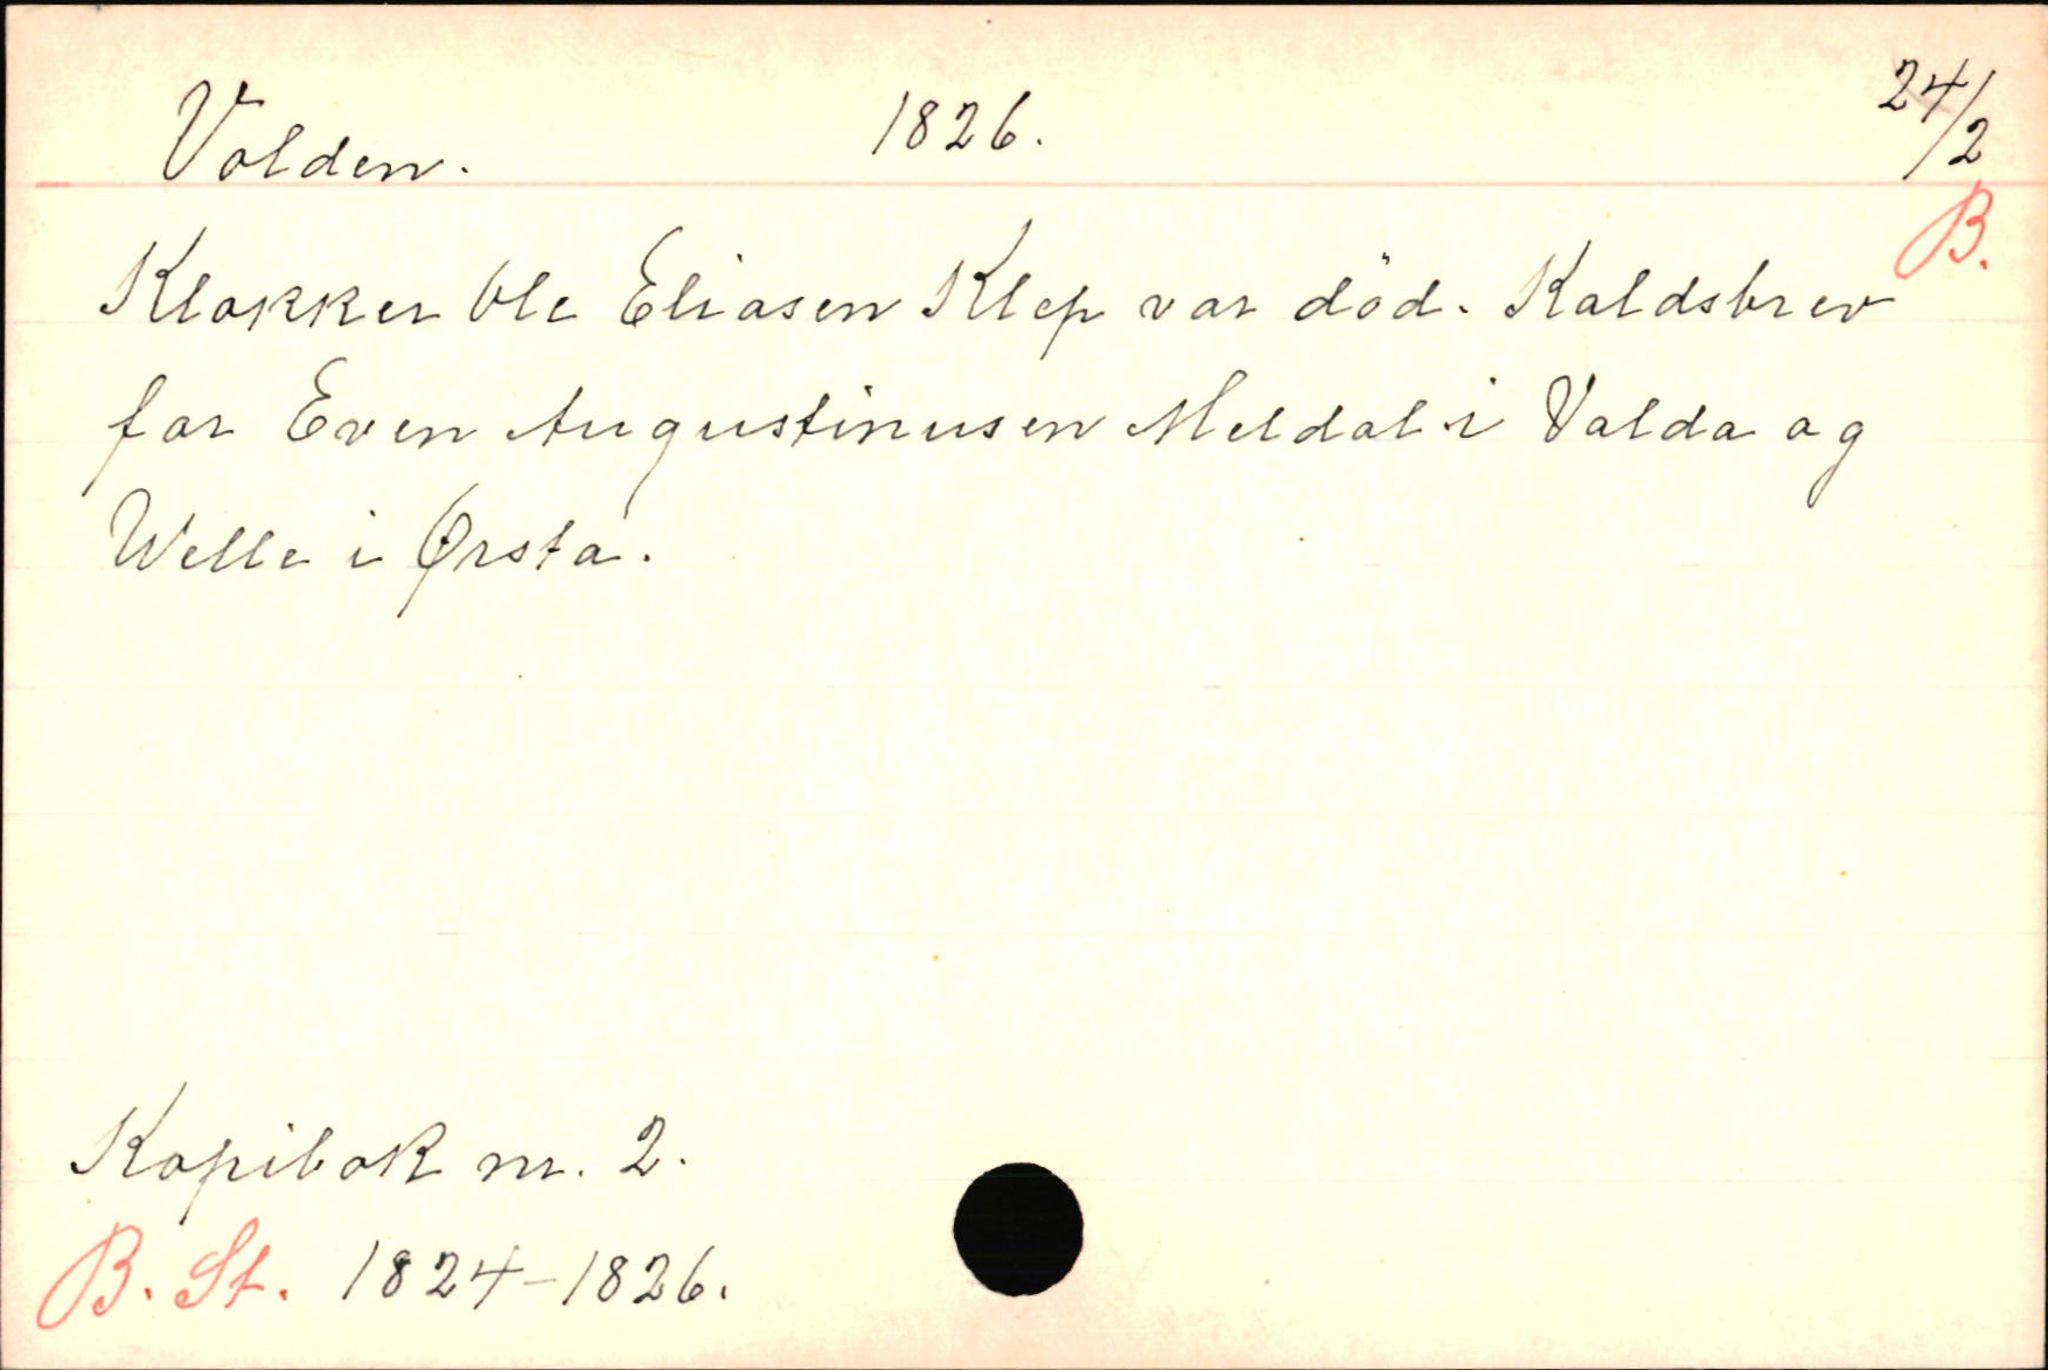 Volden. 1826. 24/2
B.
Klokker Ole Eliasen Klep var död. Kaldsbrev
for Even Augustinusen Meldal i Volda og
Welle i Ørsta.
Kopibok nr. 2.
B. St. 1824-1826.